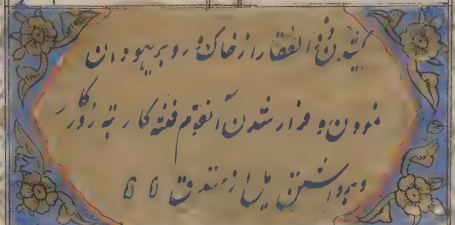 کشیدن ذو الفقار از خاک و رو بریهودان
نمودن و فرار شدن آنقوم فتنه کار تبه روزگار
و برداشتن پل از خندق